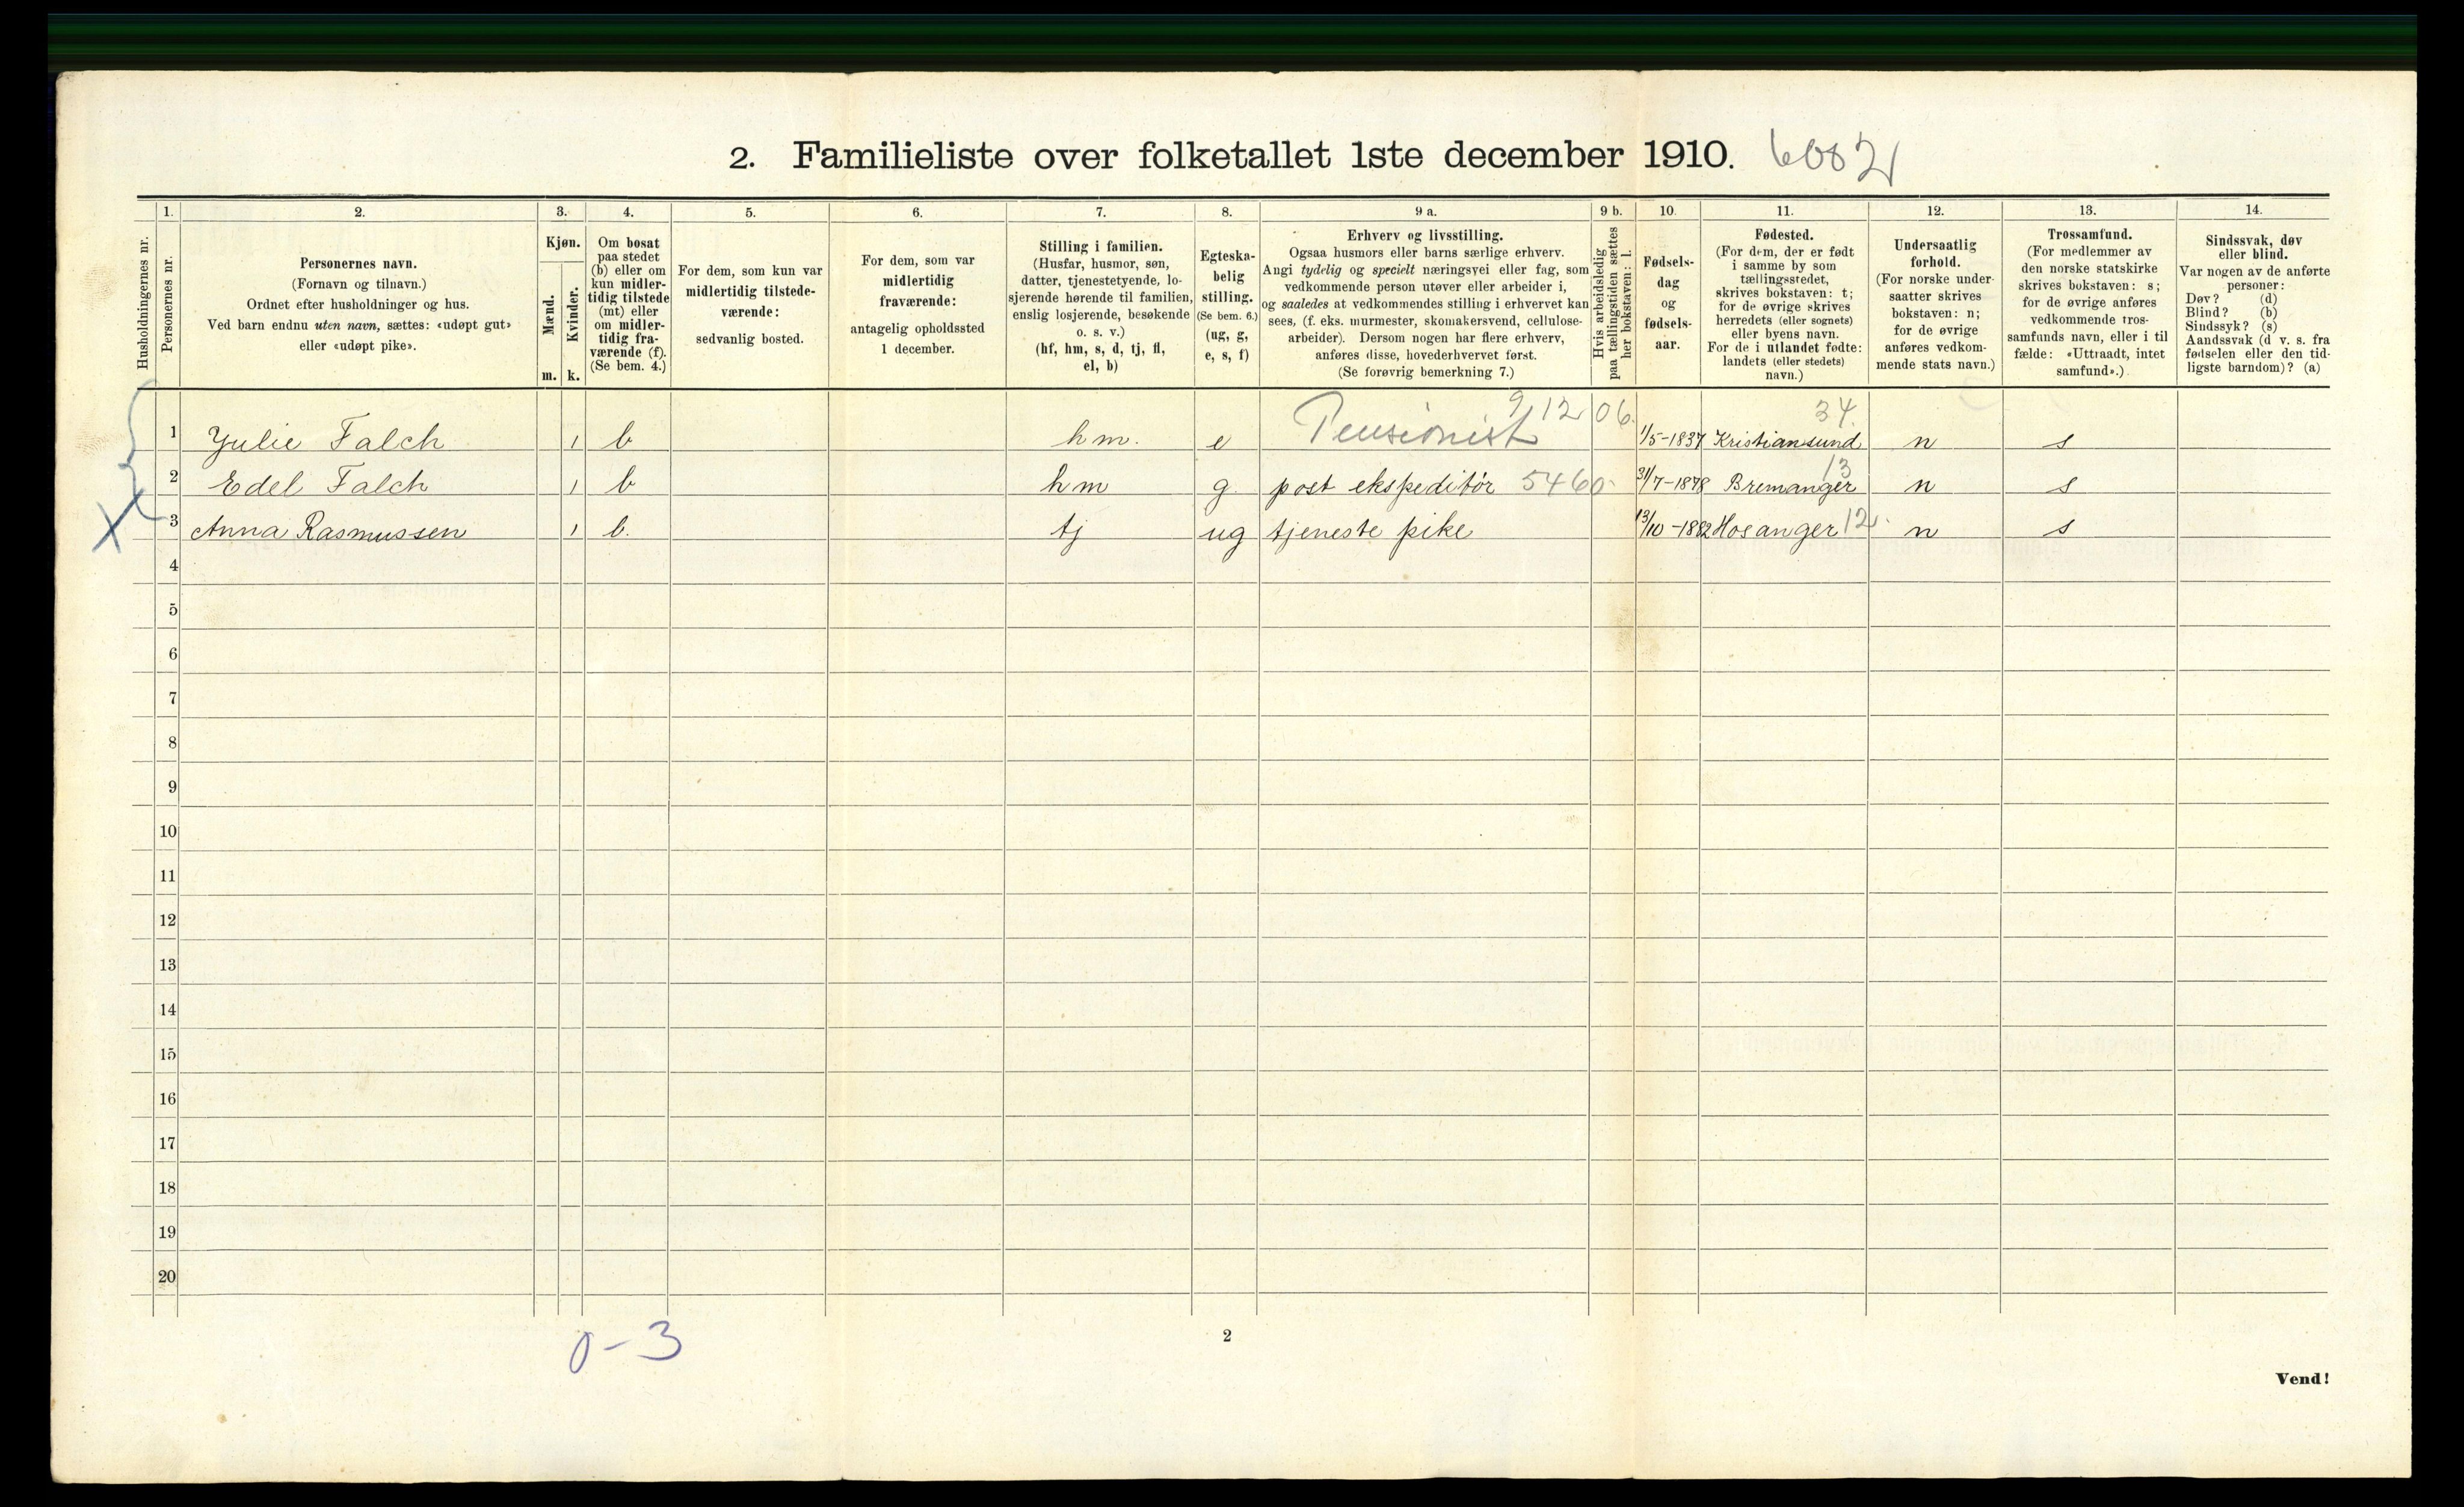 2. Familieliste over folketallet 1ste december 1910.
1. 2. 3. 4. 5. 6. 7. 8. 9 a. 9 b. 10. 11. 12. 13. 14.
Husholdningernes nr.
Personernes nr.
Personernes navn.
(Fornavn og tilnavn.)
Ordnet efter husholdninger og hus.
Ved barn endnu uten navn, sættes: «udøpt gut»
eller «udøpt pike».
Kjøn.
Mænd.
Kvinder.
m. k.
Om bosat
paa stedet
(b) eller om
kun midler-
tidig tilstede
(mt) eller
om midler-
tidig fra-
værende (f).
(Se bem. 4.)
For dem, som kun var
midlertidig tilstede-
værende:
sedvanlig bosted.
For dem, som var
midlertidig
fraværende:
antagelig opholdssted
1 december.
Stilling i familien.
(Husfar, husmor, søn,
datter, tjenestetyende, lo-
sjerende hørende til familien,
enslig losjerende, besøkende
o. s. v.)
(hf, hm, s, d, tj, fl,
el, b)
Egteska-
belig
stilling.
(Se bem. 6.)
(ug, g,
e, s, f)
Erhverv og livsstilling.
Ogsaa husmors eller barns særlige erhverv.
Angi tydelig og specielt næringsvei eller fag, som
vedkommende person utøver eller arbeider i,
og saaledes at vedkommendes stilling i erhvervet kan
sees, (f. eks. murmester, skomakersvend, cellulose-
arbeider). Dersom nogen har flere erhverv,
anføres disse, hovederhvervet først.
(Se forøvrig bemerkning 7.)
Hvis arbeidsledig
paa tællingstiden sættes
her bokstaven: l.
Fødsels-
dag
og
fødsels-
aar.
Fødested.
(For dem, der er født
i samme by som
tællingsstedet,
skrives bokstaven: t;
for de øvrige skrives
herredets (eller sognets)
eller byens navn.
For de i utlandet fødte:
landets (eller stedets)
navn.)
Undersaatlig
forhold.
(For norske under-
saatter skrives
bokstaven: n;
for de øvrige
anføres vedkom-
mende stats navn.)
Trossamfund.
(For medlemmer av
den norske statskirke
skrives bokstaven: s;
for de øvrige anføres
vedkommende tros-
samfunds navn, eller i til
fælde: «Uttraadt, intet
samfund».)
Sindssvak, døv
eller blind.
Var nogen av de anførte
personer:
Døv? (d)
Blind? (b)
Sindssyk? (s)
Aandssvak (d v. s. fra
fødselen eller den tid-
ligste barndom)? (a)
9 12 06. 34.
1 Julie Falch 1 b hm. e Pensionist 1/5-1837 Kristiansund n s
13
2 Edel Falch 1 b hm g post ekspeditør 5460 31/7-1878 Bremanger n s
3 Anna Rasmussen 1 b. tj ug tjeneste pike 13/10-1882 Hosanger 12. n s
4
5
6
7
8
9
10
11
12
13
14
15
16
17
18
19
20
0-3
2
Vend!